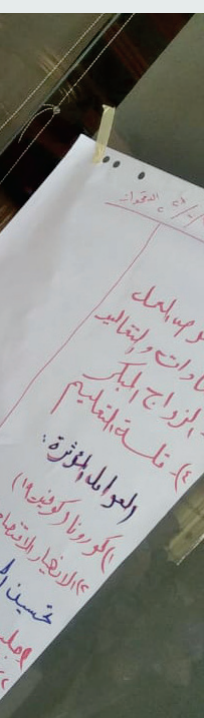 الفجوات
فرص العمل
العادات والتقاليد
الزواج المبكر
٤) قلة التعليم
العوامل المؤثرة:
١) كورونا (كوفيد ١٩)
٢) الانهيار الاقتصا
تحسين